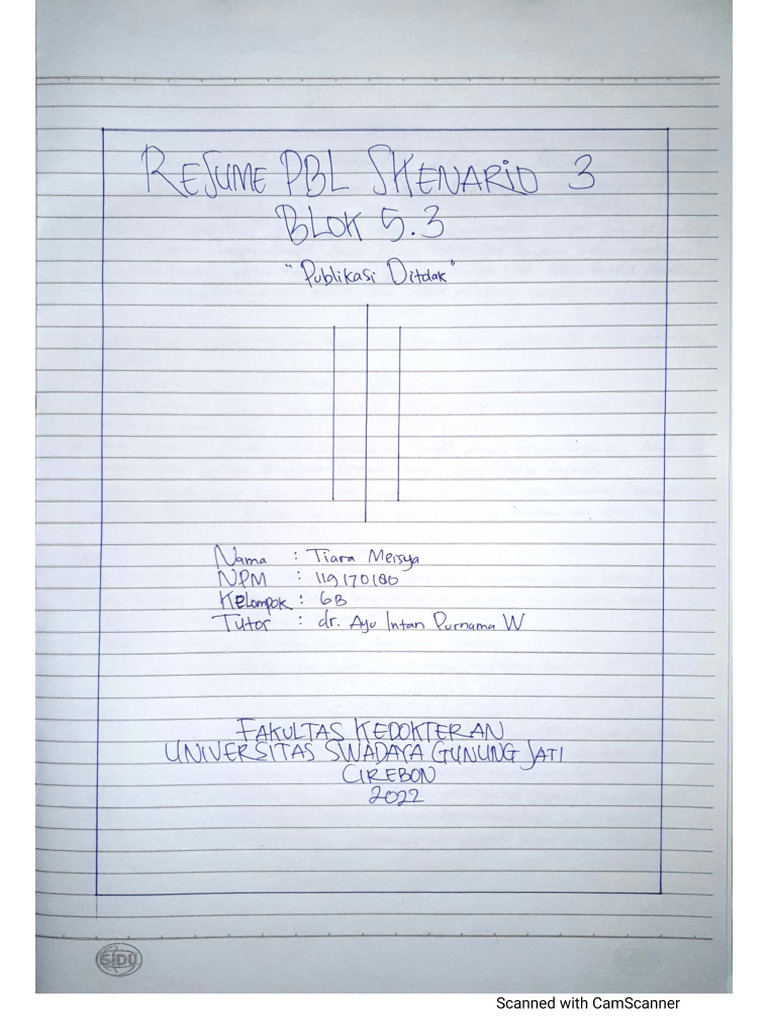 RESUME PBL SKENARIO 3
BLOK 5.3
"Publikasi Ditdak"
Nama : Tiara Meisya
NPM : 119170180
Kelompok : 6B
Tutor : dr. Ayu Intan Purnama W
FAKULTAS KEDOKTERAN
UNIVERSITAS SWADAYA GUNUNG JATI
CIREBON
2022
SIDU
Scanned with CamScanner